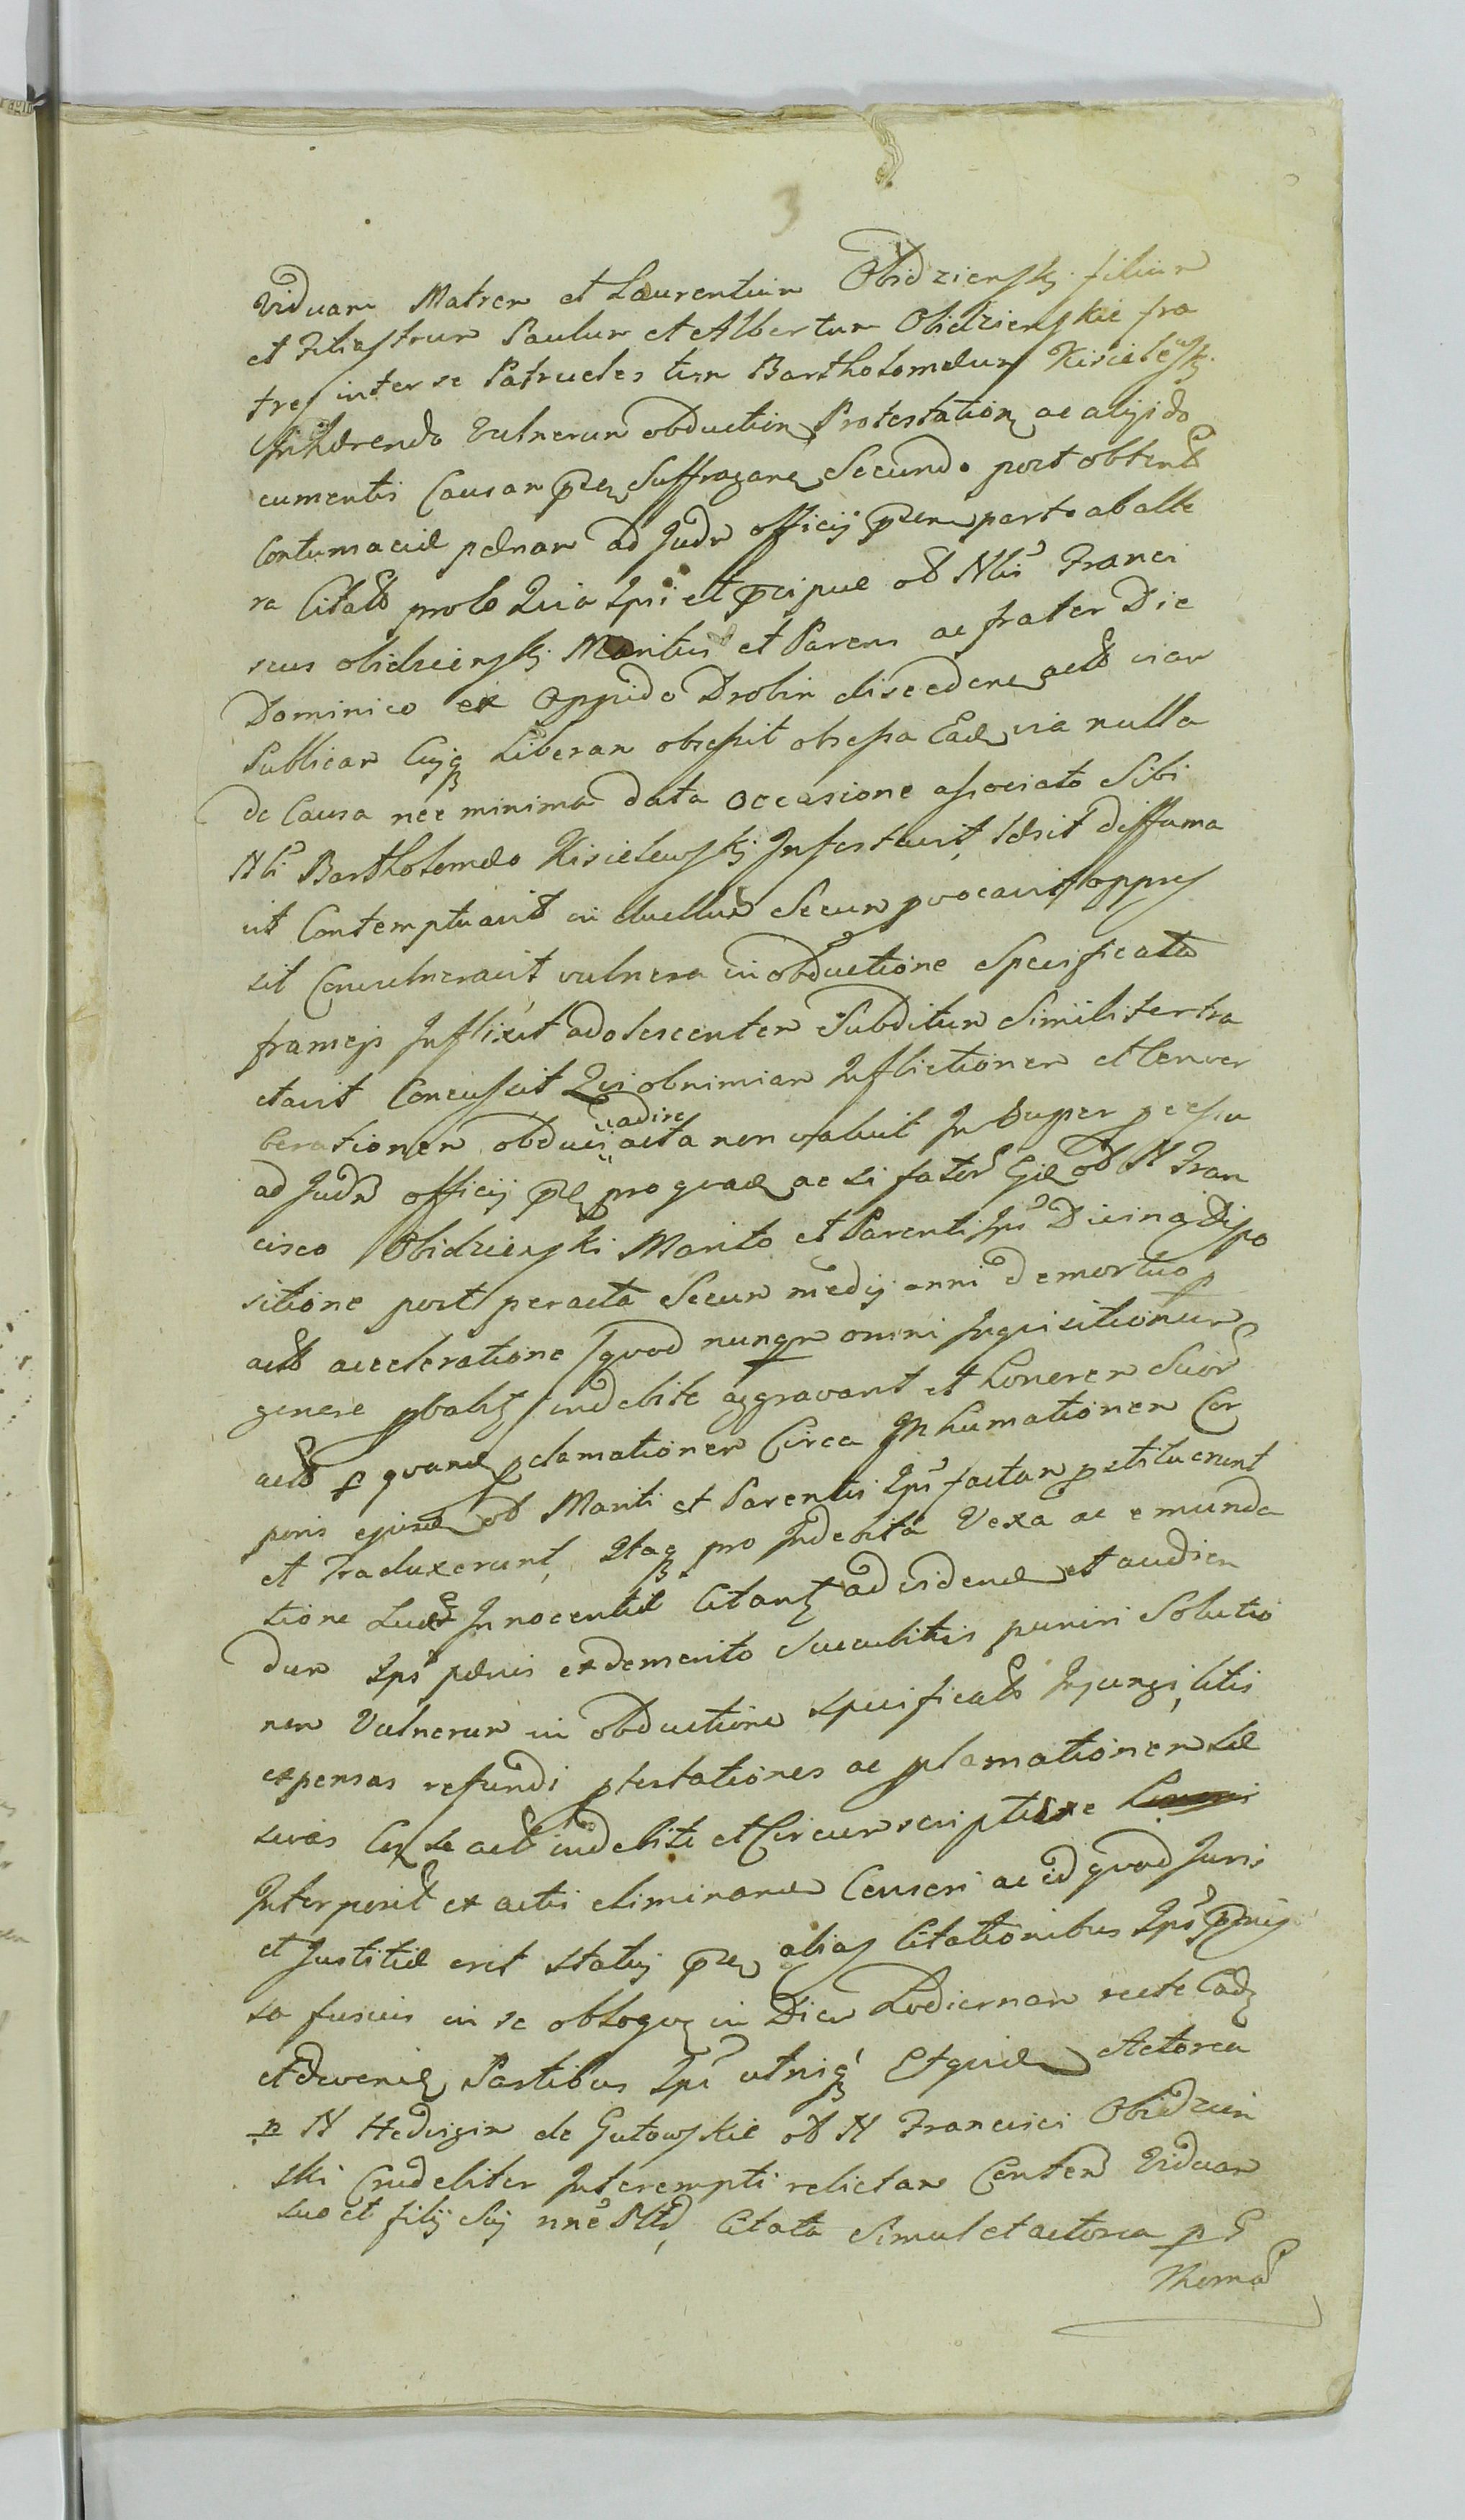 3
Viduam Matrem et Laurentium Obidzienski filium
et Filiastrum Paulum et Albertum Obidzienskie fra
tres inter se Patrueles tum Bartholomæum Kisielewski
Inhærendo Vulnerum obductioni Protestationi ac alijs do
cumentis Causam Suffragan Secundo post obtent
Contumaciæ pænam ad Judm officij parte ab alte
ra Citat prolo Quia Ipsi et pcipue ol Nlis Franci
scus obidzienski Maritus et Parens ac frater Die
Dominico ex Oppido Drobin discedene actt viam
Publicam Cuiq Liberam obsepit obsepta Eade via nulla
de Causa nec minima data occasione associato Sibi
Nli Bartholomæo Kisielewski Infestavit, læsit diffama
vit Contemptuavit in duellum Secum provocavit oppres
sit Convulneravit vulnera in obductione Specificata
frameis Inflixit adolescentem Subditum Similiter tra
ctavit Concussit Qui ob nimiam Inflictionem et Conver
berationem obduci adire acta non valuit In Super
ad Judm officij pro qua ac si fater ol N Fran
cisco Obidzienski Marito et Parenti Ips Divina Dispo
sitione post peracta Secum medij anni demortuo p
actt acceleratione quod nunqm omni Inquisitionum
genere pbabit indebite aggravant et honerem Suor
actt p quand pclamationem Circa Inhumationem Cor
poris ejusd ol Mariti et Parentis Ips factam pstituerunt
et Traduxerunt, Itaq pro Indebita Vexa ac emunda
tione Suæ Innocentiæ Citant ad vidend et audien
dum Ips pænis ex demerito Succubitis puniri Solutio
nem Vulnerum in obductione specificat Injungi, litis
expensas refundi ptestationes ac pclamationem
suas actt indebite et Circumscriptive
Interposit ex actis eliminand Censeri ac id quod Juris
et Justitiæ erit statui alias Citationibus Ips
so fusius in se obloqu in Diem hodiernam recte Cad
et devenien Partibus Ips utrisq Et quid Actorea
p N Hedvigim de Gutowskie ol N Francisci Obidzien
ski Crudeliter Interempti relictam Conten Viduam
suo et filij Sui nne Mtd, Citata Simul et actorea p G
Thoma